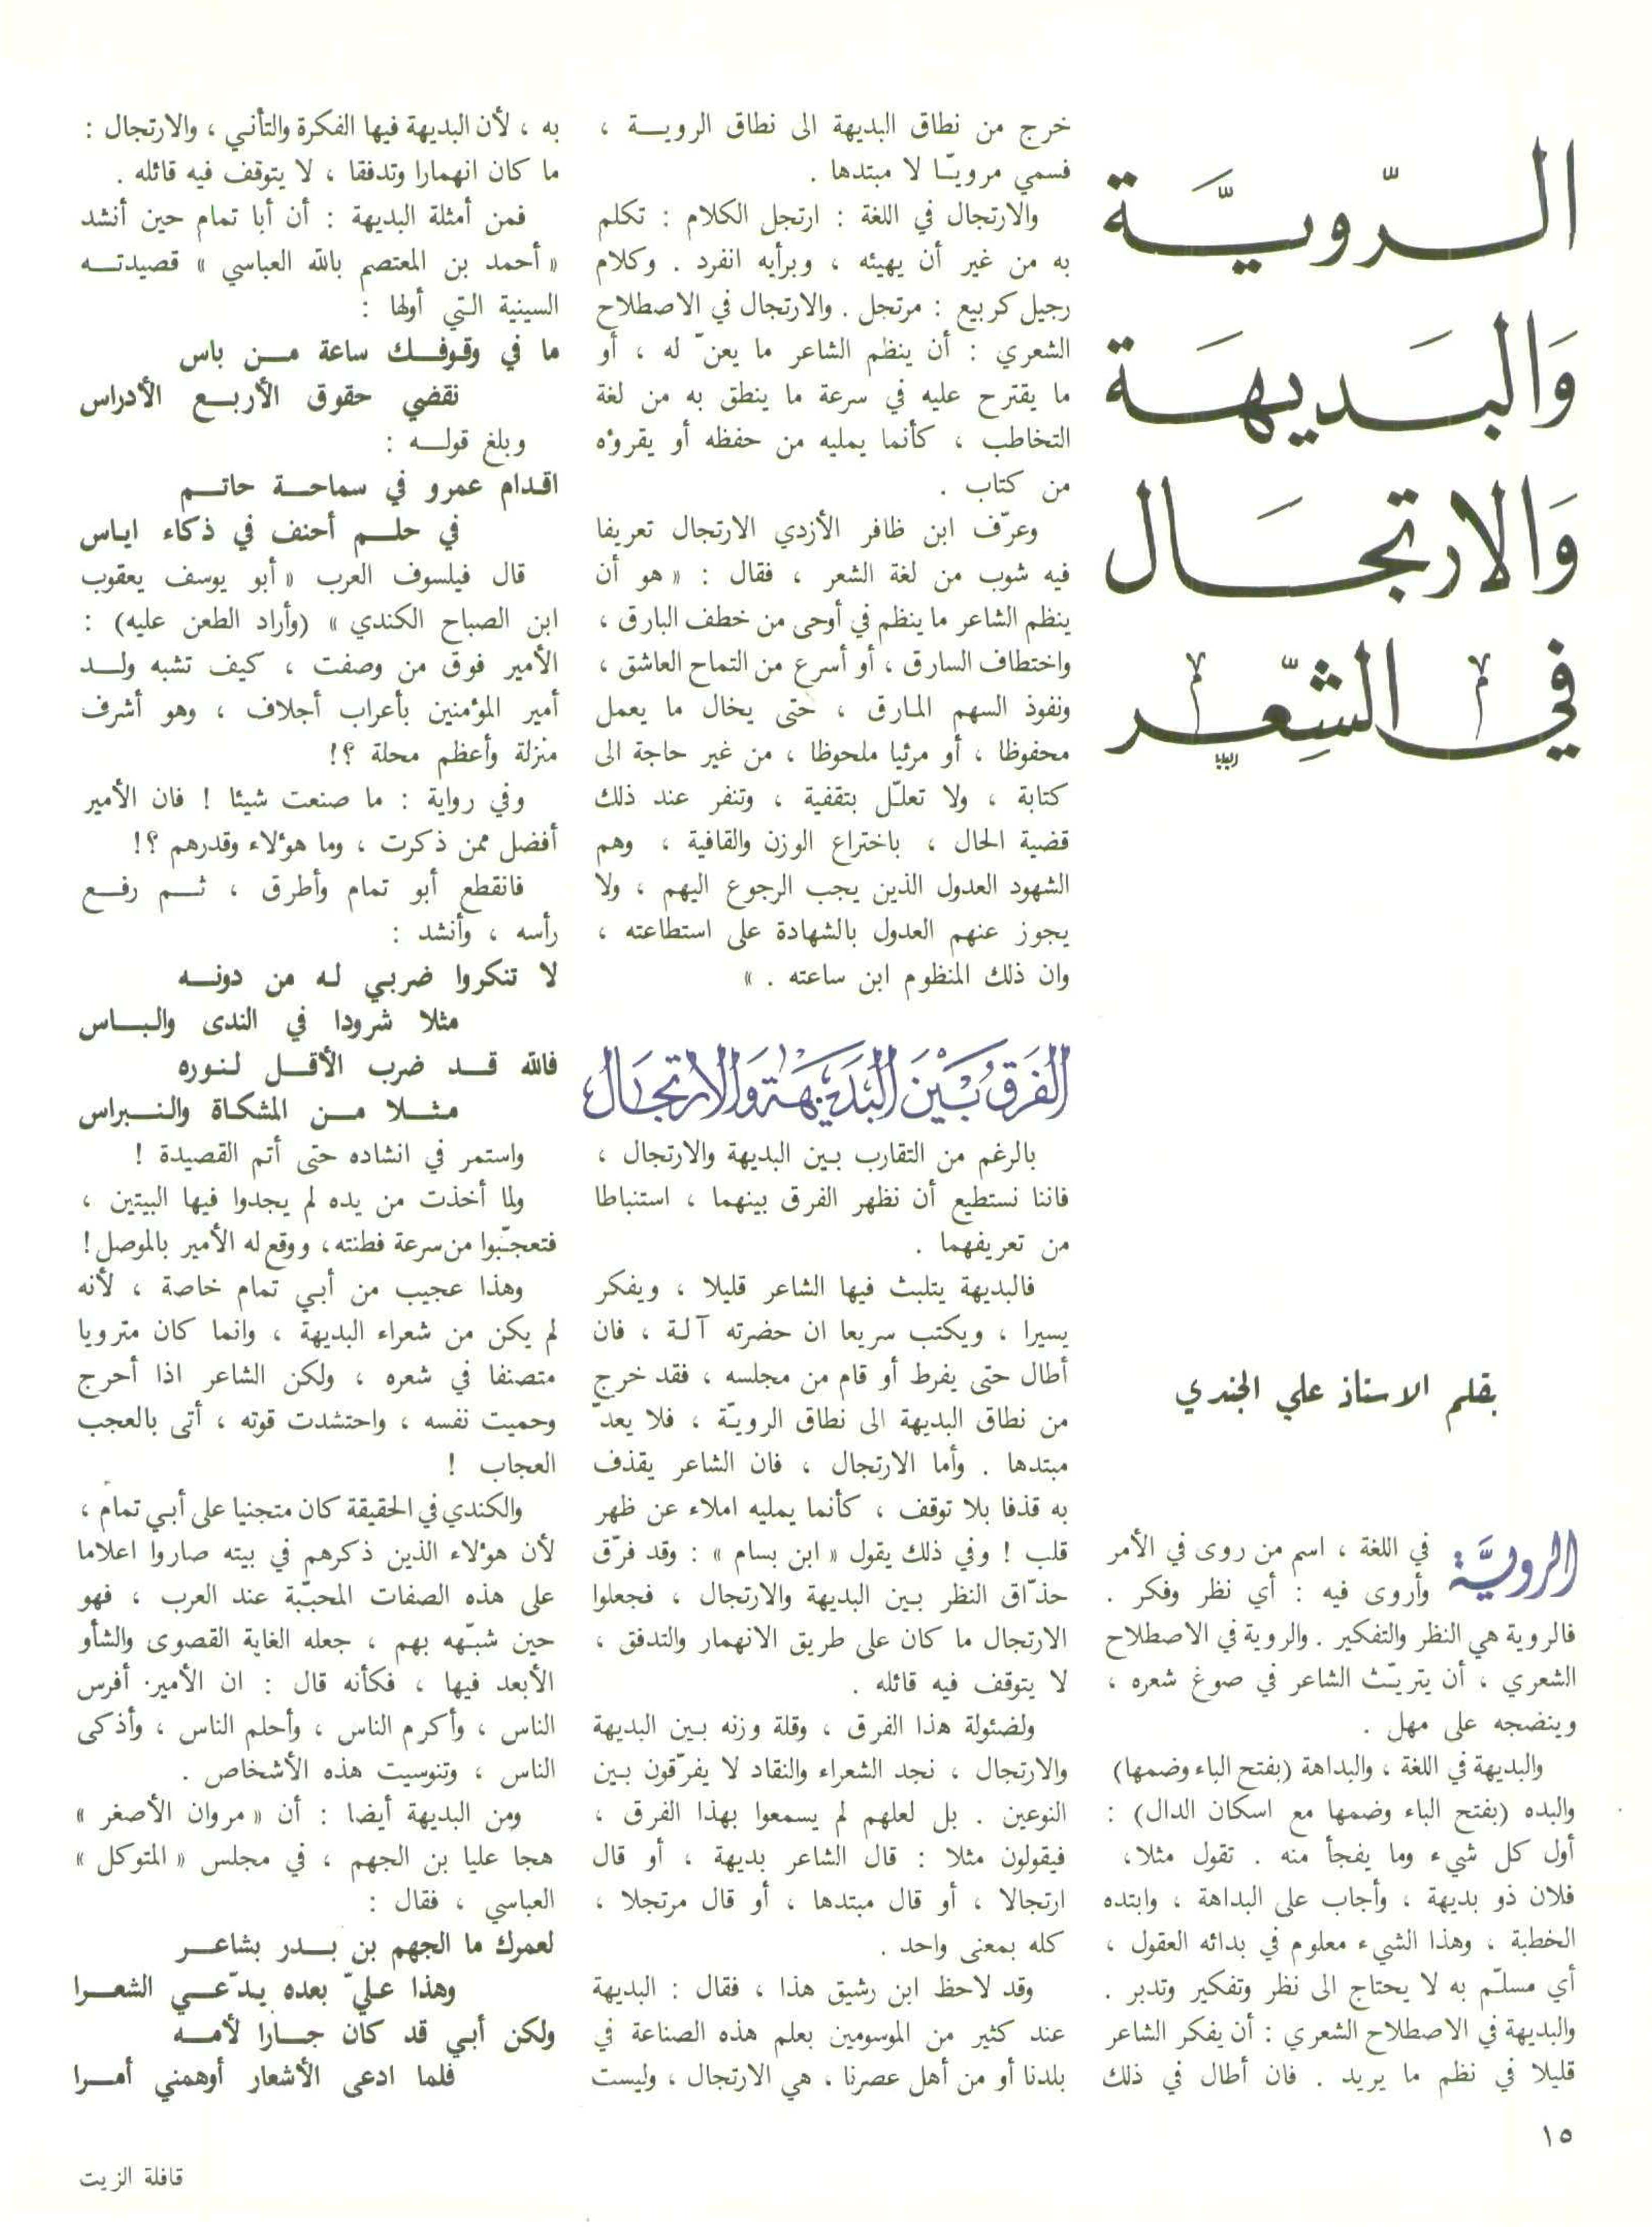 الـرّويَّـة
وَالبَـديهَـة
وَالارتجَـال
في الشِّعـر
بقلم الاستاذ علي الجندي
الرويَّة في اللغة ، اسم من روى في الأمر
وأروى فيه : أي نظر وفكر .
فالروية هي النظر والتفكير . والروية في الاصطلاح
الشعري ، أن يتريّث الشاعر في صوغ شعره ،
وينضجه على مهل .
والبديهة في اللغة ، والبداهة (بفتح الباء وضمها)
والبده (بفتح الباء وضمها مع اسكان الدال) :
أول كل شيء وما يفجأ منه . تقول مثلا،
فلان ذو بديهة ، وأجاب على البداهة ، وابتده
الخطبة ، وهذا الشيء معلوم في بدائه العقول ،
أي مسلّم به لا يحتاج الى نظر وتفكير وتدبر .
والبديهة في الاصطلاح الشعري : أن يفكر الشاعر
قليلا في نظم ما يريد . فان أطال في ذلك
خرج من نطاق البديهة الى نطاق الرويـة ،
فسمي مرويّا لا مبتدها .
والارتجال في اللغة : ارتجل الكلام : تكلم
به من غير أن يهيئه ، وبرأيه انفرد . وكلام
رجيل كربيع : مرتجل . والارتجال في الاصطلاح
الشعري : أن ينظم الشاعر ما يعنّ له ، أو
ما يقترح عليه في سرعة ما ينطق به من لغة
التخاطب ، كأنما يمليه من حفظه أو يقروٴه
من كتاب .
وعرّف ابن ظافر الأزدي الارتجال تعريفا
فيه شوب من لغة الشعر ، فقال : « هو أن
ينظم الشاعر ما ينظم في أوحى من خطف البارق ،
واختطاف السارق ، أو أسرع من التماح العاشق ،
ونفوذ السهم المارق ، حتى يخال ما يعمل
محفوظا ، أو مرئيا ملحوظا ، من غير حاجة الى
كتابة ، ولا تعلّل بتقفية ، وتنفر عند ذلك
قضية الحال ، باختراع الوزن والقافية ، وهم
الشهود العدول الذين يجب الرجوع اليهم ، ولا
يجوز عنهم العدول بالشهادة على استطاعته ،
وان ذلك المنظوم ابن ساعته . »
الفَرق بَيْنَ البَدَيهَة وَالارتجَال
بالرغم من التقارب بين البديهة والارتجال ،
فاننا نستطيع أن نظهر الفرق بينهما ، استنباطا
من تعريفهما .
فالبديهة يتلبث فيها الشاعر قليلا ، ويفكر
يسيرا ، ويكتب سريعا ان حضرته آلة ، فان
أطال حتى يفرط أو قام من مجلسه ، فقد خرج
من نطاق البديهة الى نطاق الرويّة ، فلا يعدّ
مبتدها . وأما الارتجال ، فان الشاعر يقذف
به قذفا بلا توقف ، كأنما يمليه املاء عن ظهر
قلب ! وفي ذلك يقول « ابن بسام » : وقد فرّق
حذّاق النظر بين البديهة والارتجال ، فجعلوا
الارتجال ما كان على طريق الانهمار والتدفق ،
لا يتوقف فيه قائله .
ولضئولة هذا الفرق ، وقلة وزنه بين البديهة
والارتجال ، نجد الشعراء والنقاد لا يفرّقون بين
النوعين . بل لعلهم لم يسمعوا بهذا الفرق ،
فيقولون مثلا : قال الشاعر بديهة ، أو قال
ارتجالا ، أو قال مبتدها ، أو قال مرتجلا ،
كله بمعنى واحد .
وقد لاحظ ابن رشيق هذا ، فقال : البديهة
عند كثير من الموسومين بعلم هذه الصناعة في
بلدنا أو من أهل عصرنا ، هي الارتجال ، وليست
به ، لأن البديهة فيها الفكرة والتأني ، والارتجال :
ما كان انهمارا وتدفقا ، لا يتوقف فيه قائله .
فمن أمثلة البديهة : أن أبا تمام حين أنشد
« أحمد بن المعتصم بالله العباسي » قصيدتـه
السينية التي أولها :
ما في وقوفـك ساعة مـن باس
نقضي حقوق الأربـع الأدراس
وبلغ قولـه :
اقدام عمرو في سماحـة حاتـم
في حلـم أحنف في ذكاء اياس
قال فيلسوف العرب « أبو يوسف يعقوب
ابن الصباح الكندي » (وأراد الطعن عليه) :
الأمير فوق من وصفت ، كيف تشبه ولـد
أمير المؤمنين بأعراب أجلاف ، وهو أشرف
منزلة وأعظم محلة ؟!
وفي رواية : ما صنعت شيئا ! فان الأمير
أفضل ممن ذكرت ، وما هؤلاء وقدرهم ؟!
فانقطع أبو تمام وأطرق ، ثـم رفـع
رأسه ، وأنشد :
لا تنكروا ضربي له من دونـه
مثلا شرودا في الندى والبـاس
فالله قـد ضرب الأقـل لنوره
مثـلا مـن المشكاة والنـبراس
واستمر في انشاده حتى أتم القصيدة !
ولما أخذت من يده لم يجدوا فيها البيتين ،
فتعجّبوا من سرعة فطنته، ووقع له الأمير بالموصل!
وهذا عجيب من أبي تمام خاصة ، لأنه
لم يكن من شعراء البديهة ، وانما كان مترويا
متصنفا في شعره ، ولكن الشاعر اذا أحرج
وحميت نفسه ، واحتشدت قوته ، أتى بالعجب
العجاب !
والكندي في الحقيقة كان متجنيا على أبي تمام ،
لأن هؤلاء الذين ذكرهم في بيته صاروا اعلاما
على هذه الصفات المحبّبة عند العرب ، فهو
حين شبّهه بهم ، جعله الغاية القصوى والشأو
الأبعد فيها ، فكأنه قال : ان الأمير أفرس
الناس ، وأكرم الناس ، وأحلم الناس ، وأذكى
الناس ، وتنوسيت هذه الأشخاص .
ومن البديهة أيضا : أن « مروان الأصغر »
هجا عليا بن الجهم ، في مجلس « المتوكل »
العباسي ، فقال :
لعمرك ما الجهم بن بـدر بشاعـر
وهذا عليّ بعده يدّعـي الشعـرا
ولكن أبي قد كان جـارا لأمـه
فلما ادعى الأشعار أوهمني أمـرا
١٥
قافلة الزيت